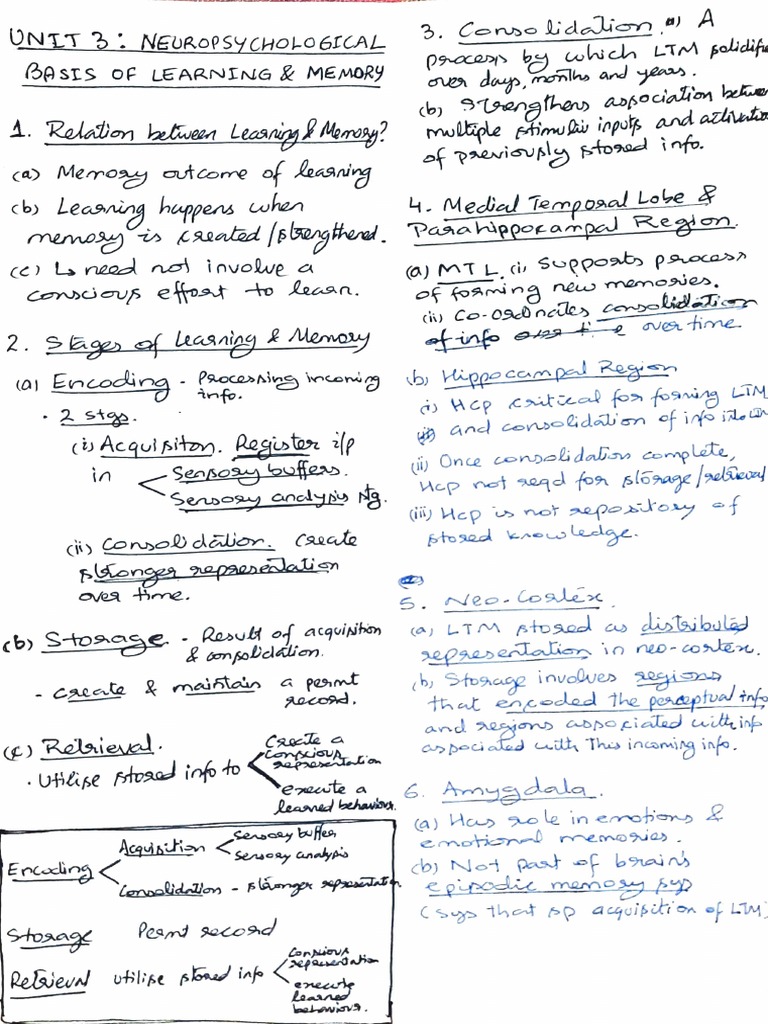 UNIT 3: NEUROPSYCHOLOGICAL
BASIS OF LEARNING & MEMORY
1. Relation between Learning & Memory?
(a) Memory outcome of learning
(b) Learning happens when
memory is created/strengthened.
(c) ↳ need not involve a
conscious effort to learn.
2. Stages of Learning & Memory
(a) Encoding - Processing incoming
info.
• 2 stgs.
(i) Acquisiton. Register i/p
in
Sensory buffers.
Sensory analysis stg.
(ii) Consolidation. Create
stronger representation
over time.
(b) Storage - Result of acquisition
& consolidation.
- create & maintain a permt
record.
(c) Retrieval.
• Utilise stored info to
Create a
conscious
representation
execute a
learned behaviors.
Encoding
Acquisition
Sensory buffer
Sensory analysis
Consolidation - stronger representation
Storage Permt record
Retrieval utilise stored info
conscious
representation
execute
learned
behaviours.
3. Consolidation. (a) A
process by which LTM solidifi
over days, months and years.
(b) Strengthens association betwee
multiple stimuli inputs and activatio
of previously stored info.
4. Medial Temporal Lobe &
Parahippocampal Region.
(a) MTL. (i) Supports process
of forming new memories.
(ii) Co-ordinates consolidation
of info over time.
(b) Hippocampal Region
(i) Hcp critical for forming LTM
and consolidation of info into LTM
(ii) Once consolidation complete,
Hcp not reqd for storage/retrieval
(iii) Hcp is not repository of
stored knowledge.
5. Neo-Cortex.
(a) LTM stored as distributed
representation in neo-cortex.
(b) Storage involves regions
that encoded the perceptual info
and regions associated with info
associated with this incoming info.
6. Amygdala.
(a) Has role in emotions &
emotional memories.
(b) Not part of brain's
episodic memory sys
(sys that sp acquisition of LTM)